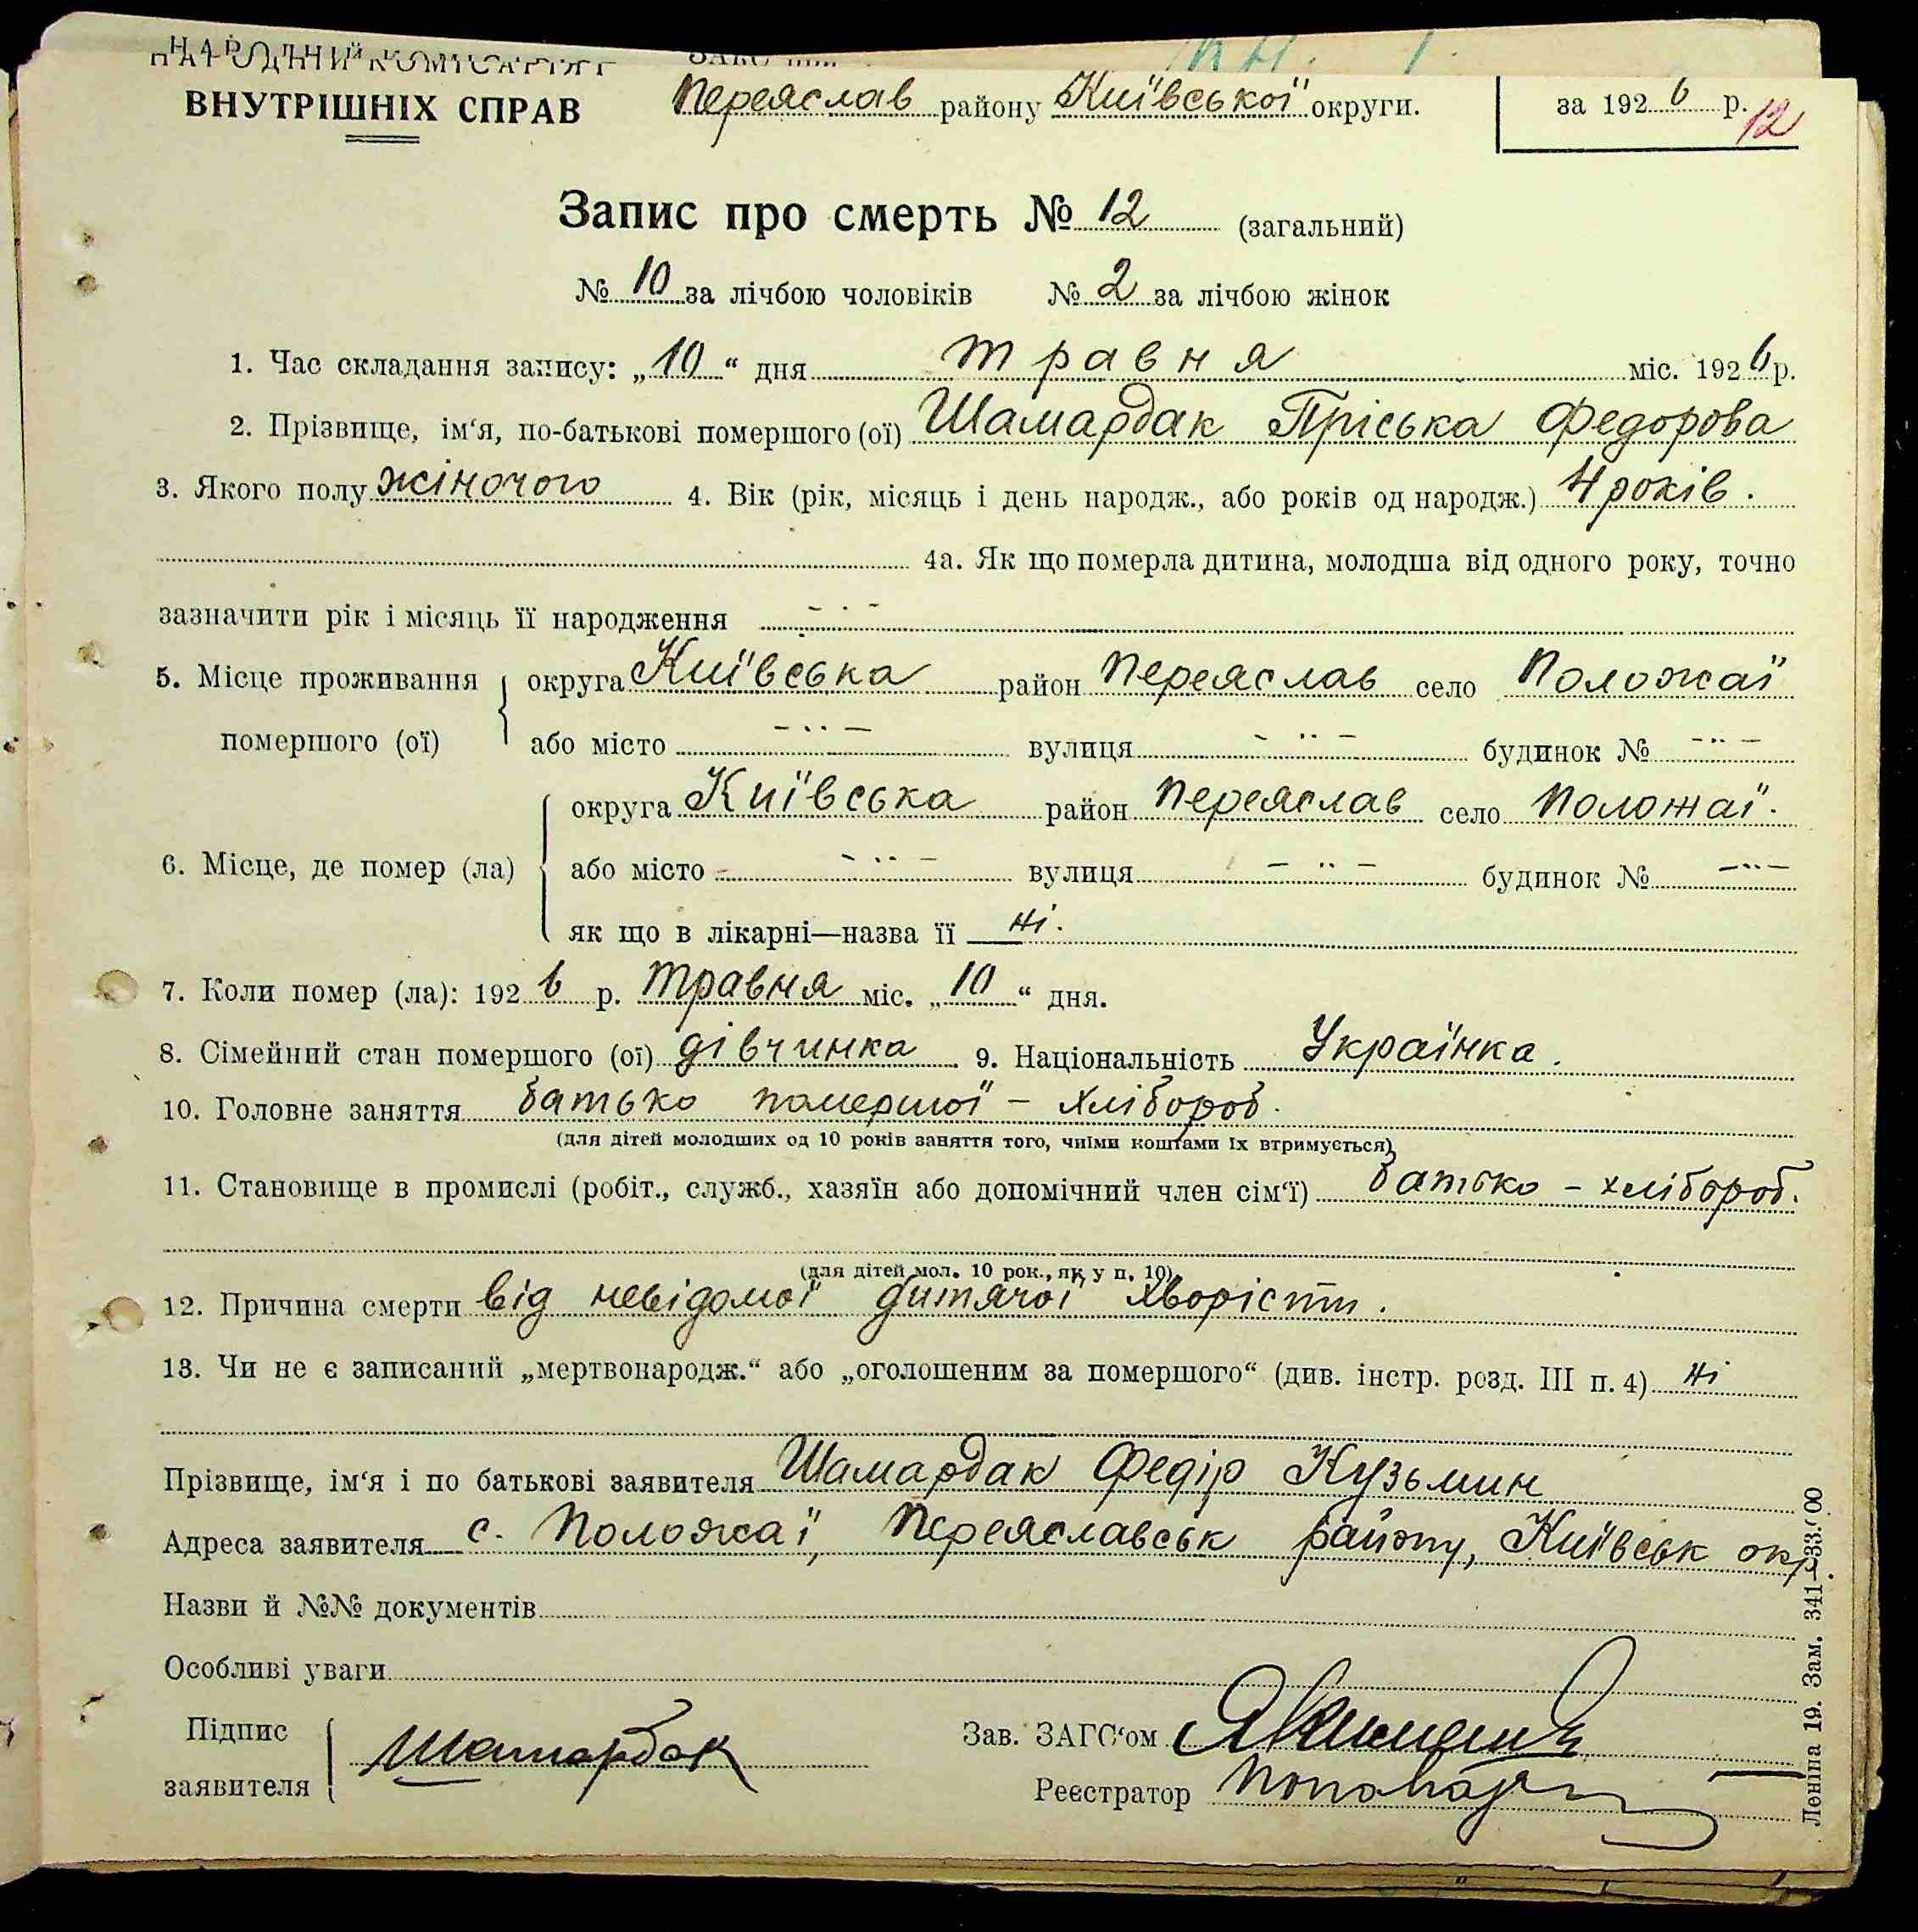 НАРОДНИЙ КОМІСАРІЯТ
ВНУТРІШНІХ СПРАВ Переяслав району Київської округи. за 1926 р. 12
Запис про смерть № 12 (загальний)
№ 10 за лічбою чоловіків № 2 за лічбою жінок
1. Час складання запису: „10“ дня травня міс. 1926 р.
2. Прізвище, ім‘я, по-батькові помершого (ої) Шамардак Пріська Федорова
3. Якого полу жіночого 4. Вік (рік, місяць і день народж., або років од народж.) 4 років.
4а. Як що померла дитина, молодша від одного року, точно
зазначити рік і місяць її народження
5. Місце проживання округа Київська район Переяслав село Положаї
помершого (ої) або місто -··- вулиця -··- будинок № -··-
округа Київська район Переяслав село Положаї.
6. Місце, де помер (ла) або місто -··- вулиця -··- будинок № -··-
як що в лікарні—назва її ні.
7. Коли помер (ла): 1926 р. травня міс. „10“ дня.
8. Сімейний стан помершого (ої) дівчинка 9. Національність Українка.
10. Головне заняття батько помершої - хлібороб.
(для дітей молодших од 10 років заняття того, чиїми коштами їх втримується)
11. Становище в промислі (робіт., служб., хазяїн або допомічний член сім‘ї) батько - хлібороб.
(для дітей мол. 10 рок., як у п. 10)
12. Причина смерти від невідомої дитячої хворісти.
13. Чи не є записаний „мертвонародж.“ або „оголошеним за помершого“ (див. інстр. розд. III п. 4) ні
Прізвище, ім‘я і по батькові заявителя Шамардак Федір Кузьмин
Адреса заявителя с. Положаї, Переяславськ району, Київськ окр.
Назви й №№ документів
Особливі уваги
Підпис Шамардак Зав. ЗАГС‘ом
заявителя Реєстратор
Леніна 19. Зам. 341—33.